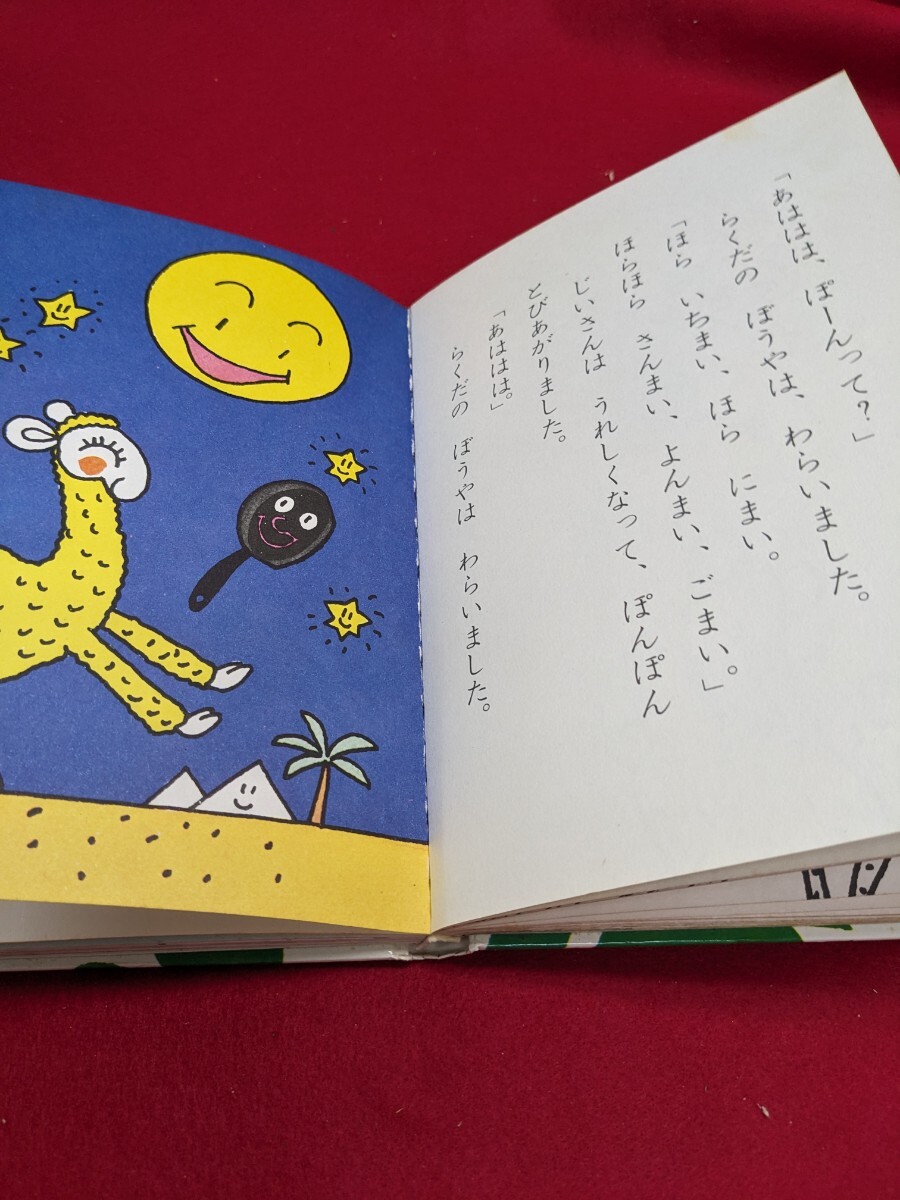 「あははは、ぽーんって？」
らくだの　ぼうやは、わらいました。
「ほら　いちまい、ほら　にまい。
ほらほら　さんまい、よんまい、ごまい。」
じいさんは　うれしくなって、ぽんぽん
とびあがりました。
「あははは。」
らくだの　ぼうやは　わらいました。